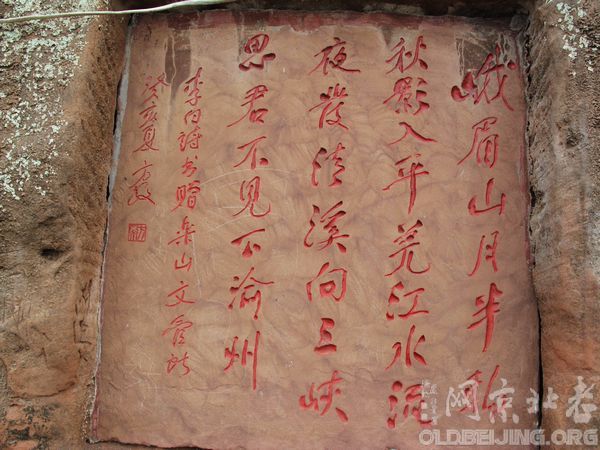 峨眉山月半轮
秋影入平羌江水流
夜發清溪向三峡
思君不见下渝州
李白詩书赠乐山文管所
癸亥夏
老北京网
OLDBEIJING.ORG